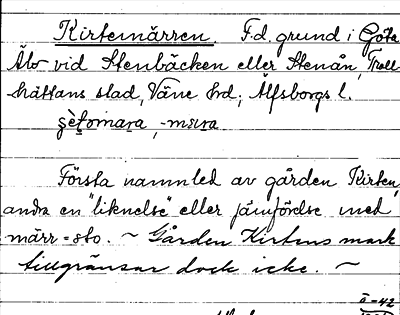 Kirtemärren F.d. grund i Göta
Älv vid Stenbäcken eller Stenån, Troll-
hättans stad, Väne hd, Älfsborgs l.
Första namnled av gården Kirten,
andra en "liknelse" eller jämförelse med
märr = sto. ~ Gården Kirtens mark
tillgränsar dock icke. ~
ö-42